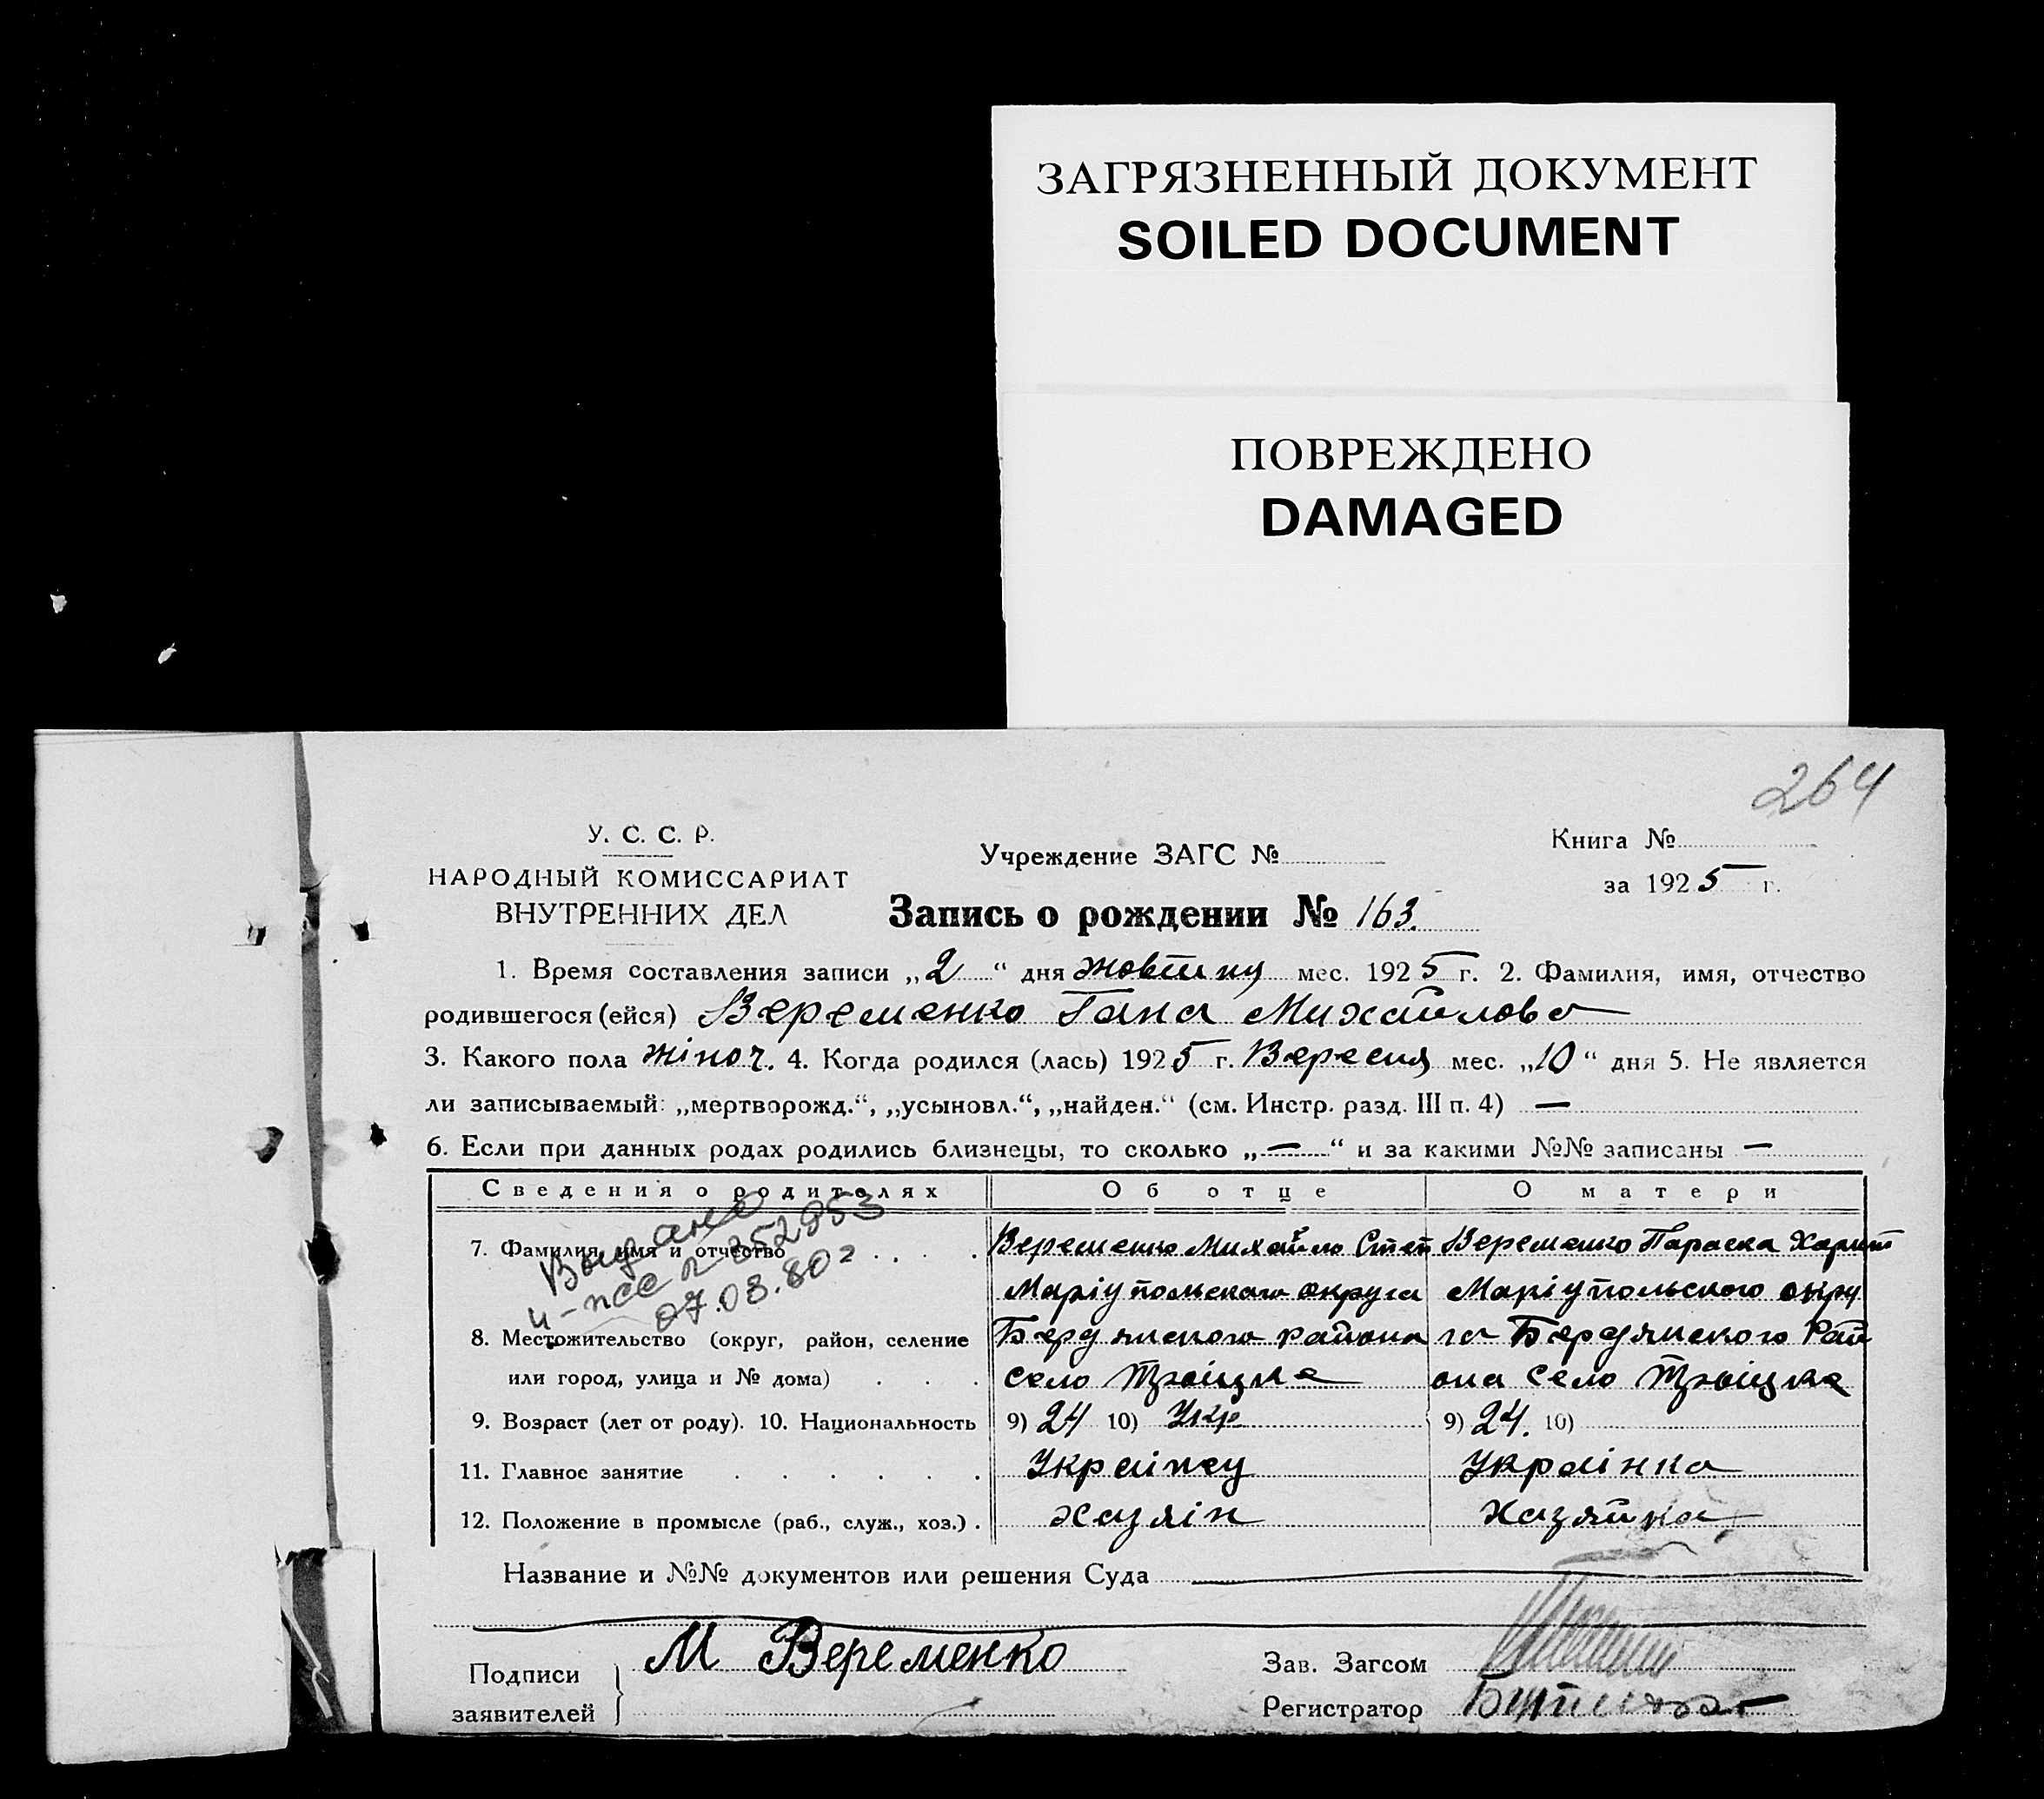 ЗАГРЯЗНЕННЫЙ ДОКУМЕНТ
SOILED DOCUMENT
ПОВРЕЖДЕНО
DAMAGED
264
У. С. С. Р.
НАРОДНЫЙ КОМИССАРИАТ
ВНУТРЕННИХ ДЕЛ
Учреждение ЗАГС №
Запись о рождении № 163.
Книга №
за 1925 г.
1. Время составления записи „2“ дня жовтня мес. 1925 г. 2. Фамилия, имя, отчество
родившегося (ейся) Веременко Гана Михайлова
3. Какого пола жіноч. 4. Когда родился (лась) 1925 г. Вересня мес. „10“ дня 5. Не является
ли записываемый: „мертворожд.“, „усыновл.“, „найден.“ (см. Инстр. разд. III п. 4) —
6. Если при данных родах родились близнецы, то сколько „—“ и за какими №№ записаны —
Сведения о родителях Об отце О матери
7. Фамилия, имя и отчество . . . . Веременко Михайло Степ Веременко Параска Харит
Выдано
07.03.80г
Маріупольского округа Маріупольского окру
8. Местожительство (округ, район, селение Бердянского района га Бердянского Рай
или город, улица и № дома) . . . село Троіцке она село Троіцке
9. Возраст (лет от роду). 10. Национальность 9) 24 10) Укр 9) 24. 10)
11. Главное занятие . . . . . . Українец Українка
12. Положение в промысле (раб., служ., хоз.) . хазяін Хазяйка
Название и №№ документов или решения Суда
Подписи
заявителей
М Веременко
Зав. Загсом
Регистратор